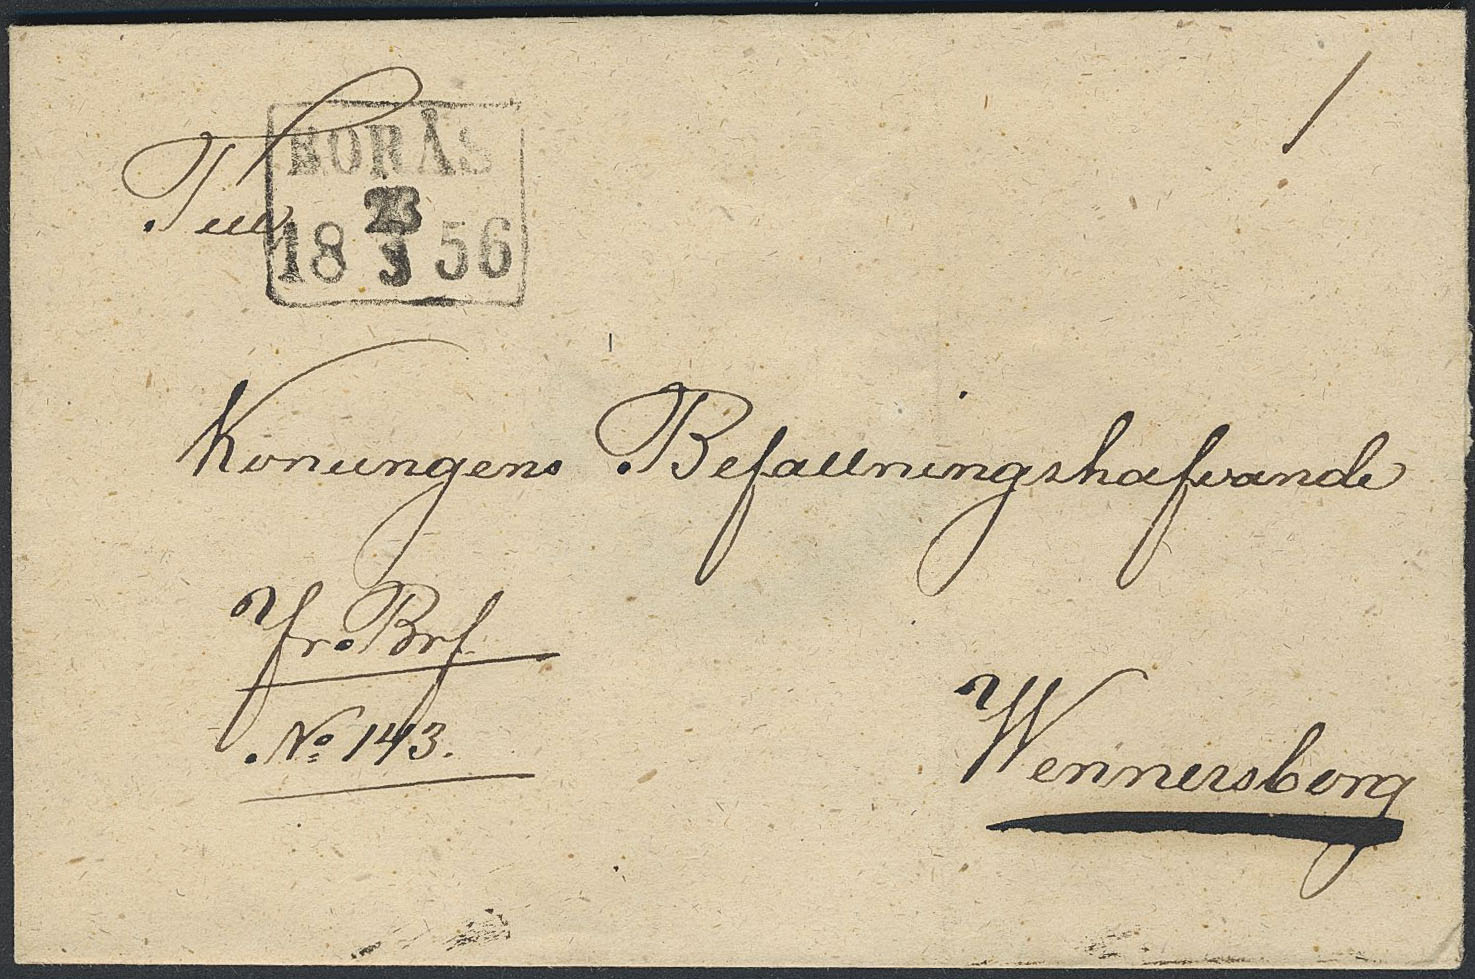 Till
BORÅS
23
18 3 56
Konungens Befallningshafvande
fr. Brf
No 143.
Wennersborg